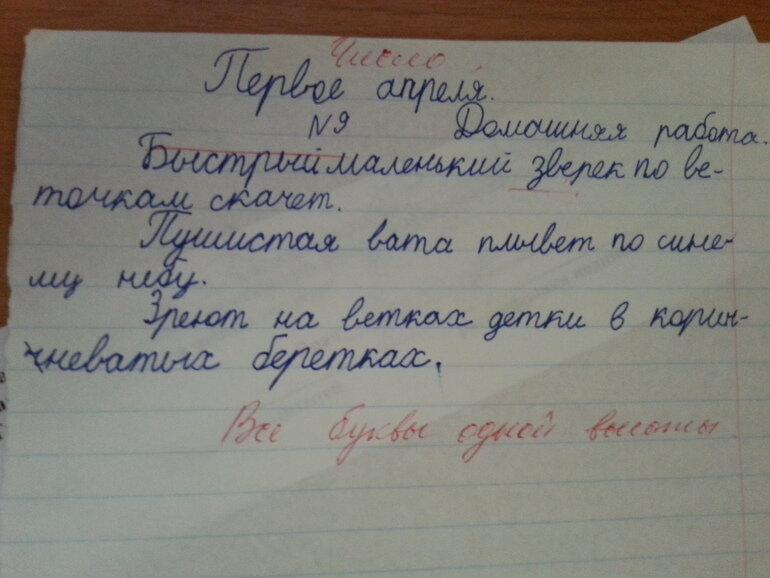 Число
Первое апреля.
№9 Домашняя работа.
Быстрый маленький зверек по ве-
точкам скачет.
Пушистая вата плывет по сине-
му небу.
Зреют на ветках детки в корич-
чневатых беретках.
Все буквы одной высоты